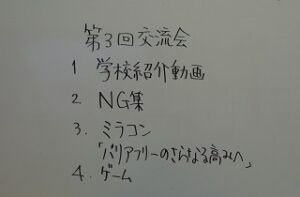 第3回交流会
1 学校紹介動画
2 NG集
3. ミラコン
「バリアフリーのさらなる高みへ」
4. ゲーム